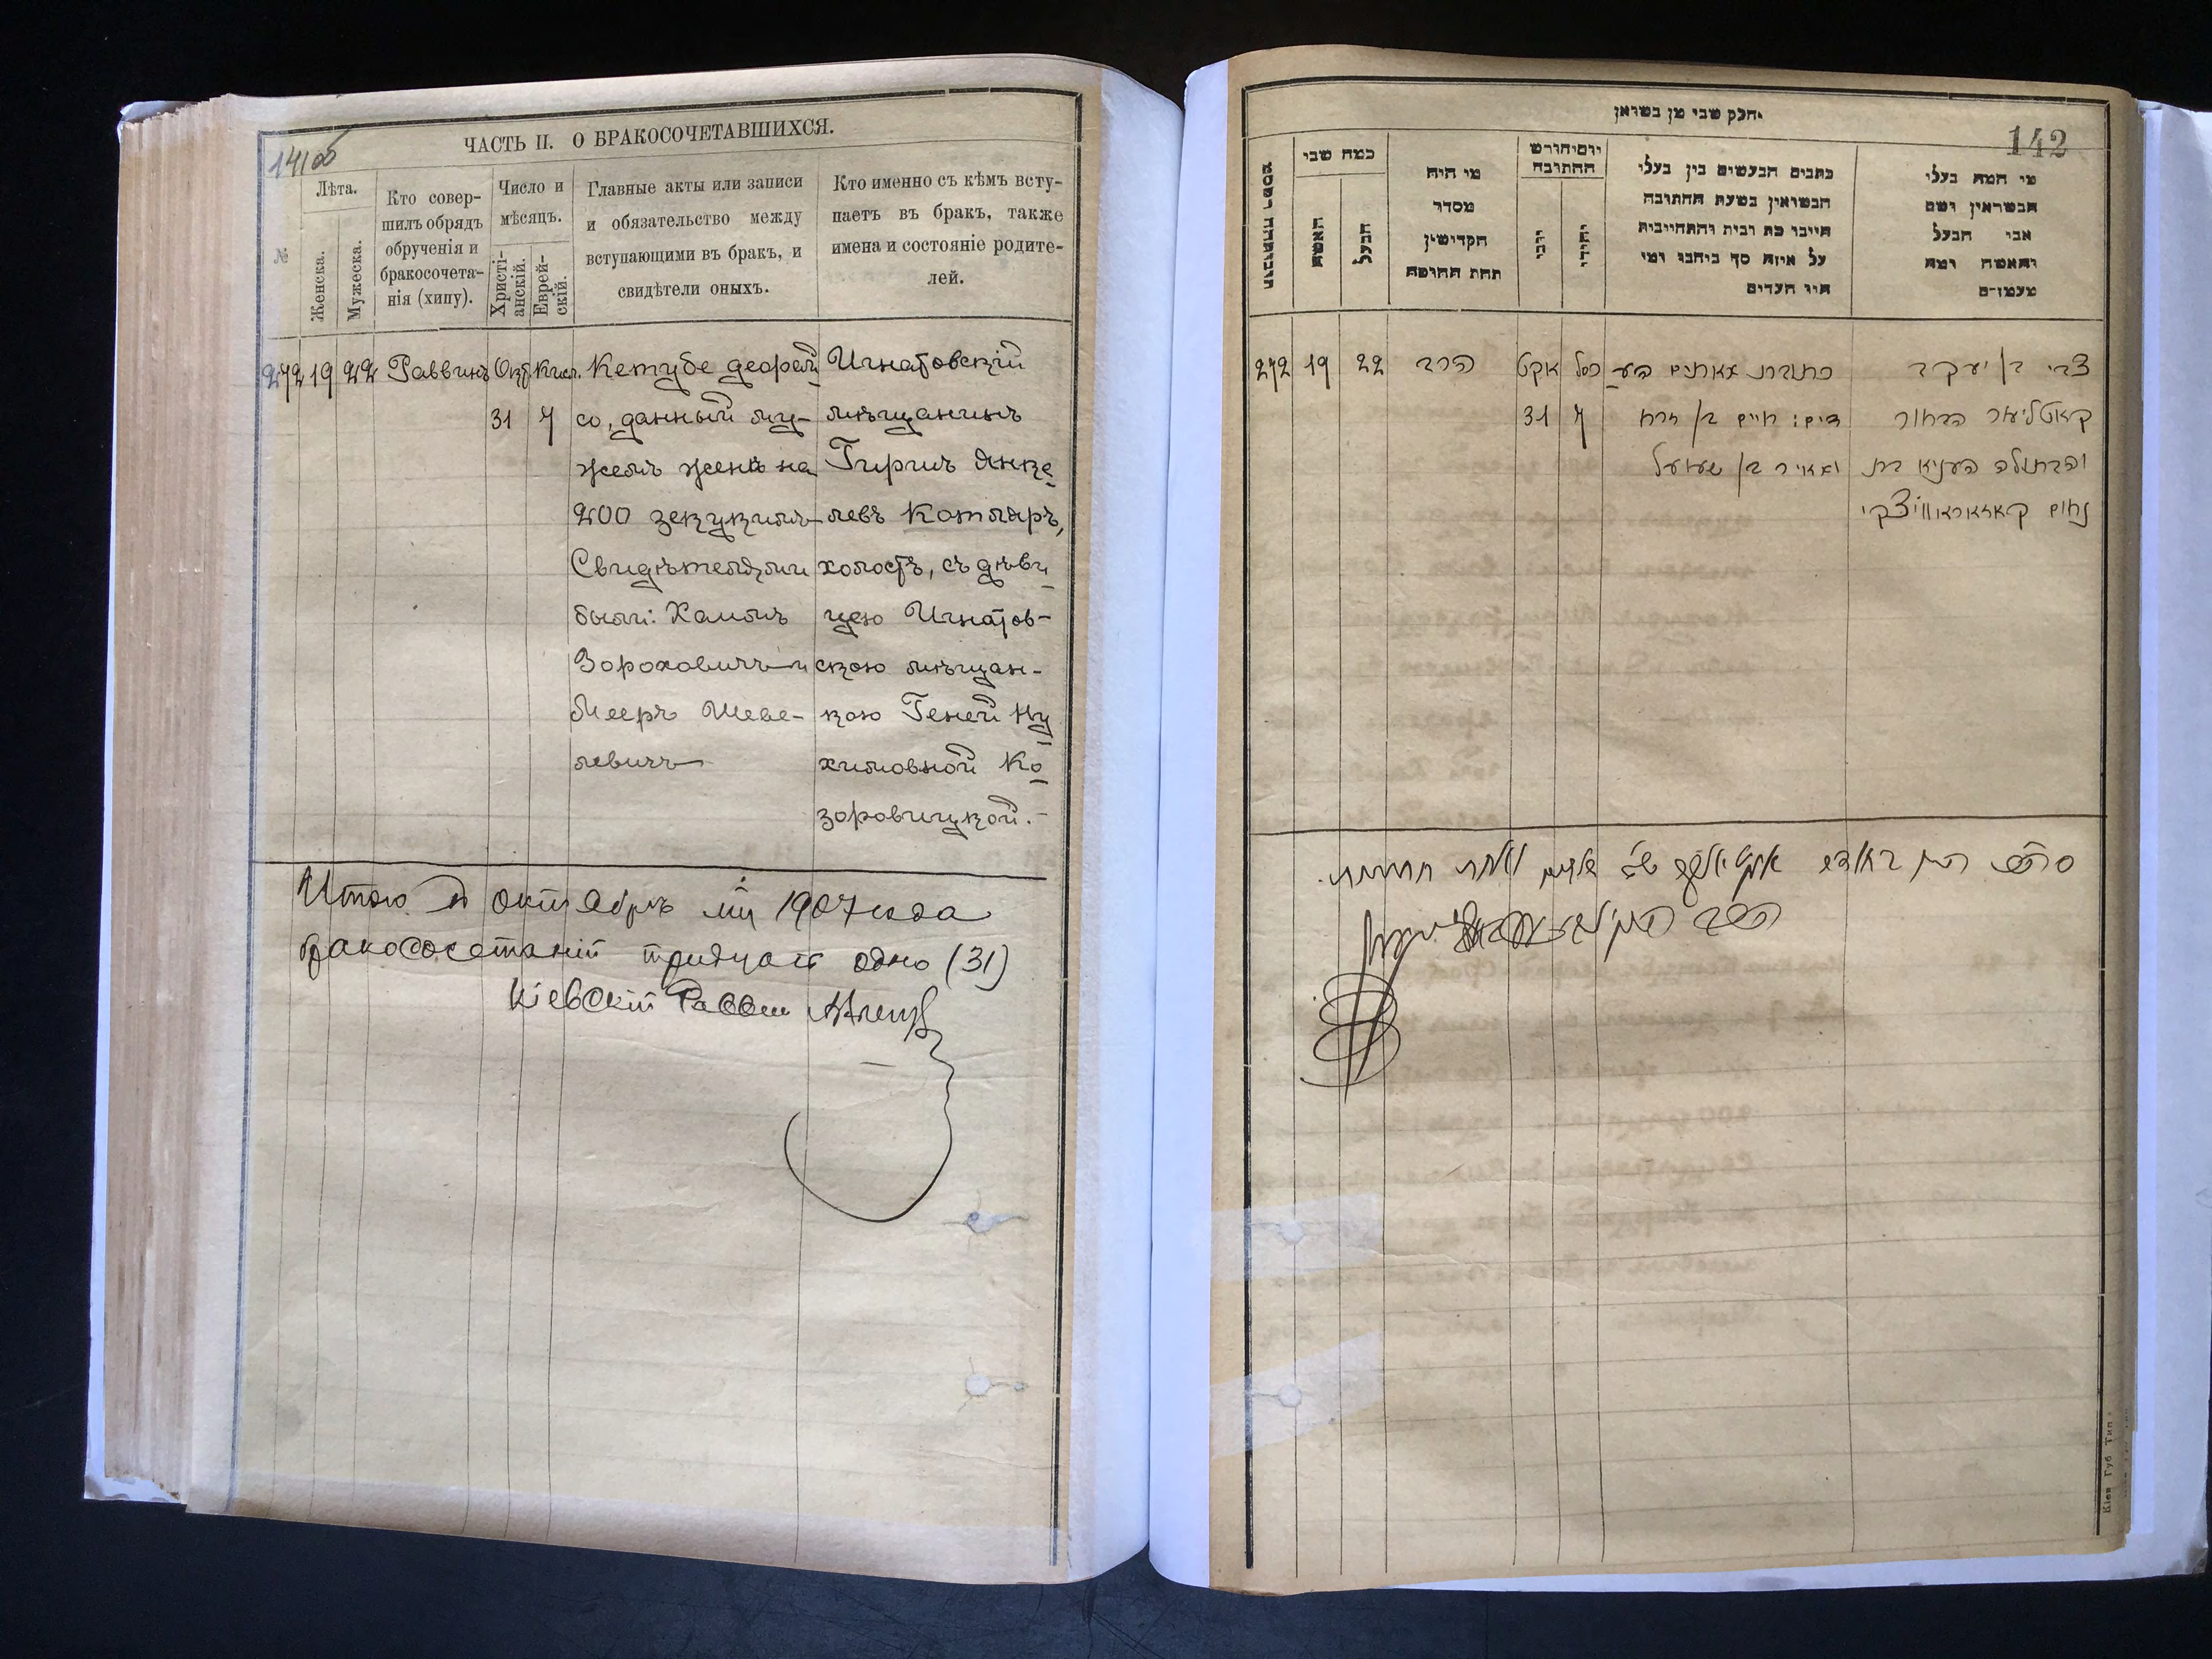 141об
ЧАСТЬ II. О БРАКОСОЧЕТАВШИХСЯ.
№
Лѣта.
Женска.
Мужеска.
Кто совер-
шилъ обрядъ
обрученія и
бракосочета-
нія (хипу).
Число и
мѣсяцъ.
Христі-
анскій.
Еврей-
скій.
Главные акты или записи
и обязательство между
вступающими въ брак, и
свидѣтели оныхъ.
Кто именно съ кѣмъ всту-
паетъ въ бракъ, также
имена и состояніе родите-
лей.
272 19 22 Раввинъ Окт Кисл.
31 7
Кетубе деорай
со, данный му-
жемъ женѣ на
200 зекукимъ
Свидѣтелями
были: Хаимъ
Зороховичъ и
Мееръ Шеве-
левичъ
Игнатовскій
мѣщанинъ
Гиршъ Янке
левъ Котляръ,
холостъ, съ дѣви
цею Игнатов-
скою мѣщан-
кою Геней Ну
химовной Ко
зоровицкой.-
Итого в октябрѣ мц 1907 года
бракосочетаній тридцать одно (31)
Кіевскій Раввин
142
חלק שני מן נשואין.
כמה שני
האשה
הבעל
מי היה
מסדר
הקדושין
תחת החופה
יום וחורש
החתונה
יהודי
כתבים הנעשים בין בעלי
הנשואין בשעת החתונה
על איזה סך ביחבו ומי
היו העדים
מי המה בעלי
הנשואין ושם
אבי הבעל
והאשה ומה
מעמדם
272 19 22 הרב אקט כסל
31 7
כתובת מאתים הע
דים: חיים בן זרח
ומאיר בן שעוועל
צבי בן יעקב
קאטליער הבחור
והבתולה העניא בת
נחום קאזאראוויצקי